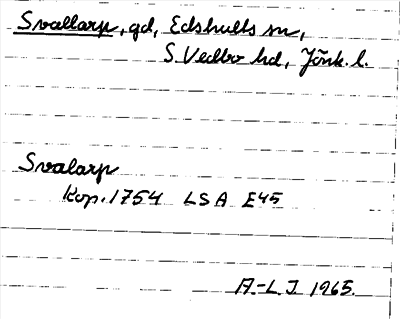 Svallarp, gd, Edshults sn,
S. Vedbo hd, Jönk. l.
Svalarp
Kop. 1754 LSA E45
A.-L. J. 1965.